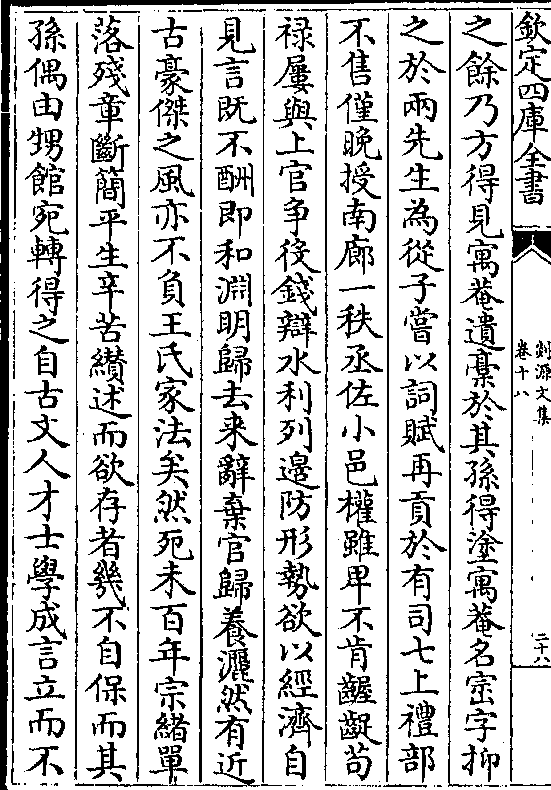 欽定四庫全書
剡源文集
卷十八
二十八
之餘乃方得見寓菴遺槀於其孫得塗寓菴名宻字抑
之於兩先生為從子嘗以詞賦再貢於有司七上禮部
不售僅晚授南廊一秩丞佐小邑權雖卑不肯齷齪苟
禄屢與上官争役錢辯水利列邉防形勢欲以經濟自
見言既不酬即和淵明歸去来辭棄官歸養灑然有近
古豪傑之風亦不負王氏家法矣然死未百年宗緒單
落殘章斷簡平生辛苦纉述而欲存者幾不自保而其
孫偶由甥館宛轉得之自古文人才士學成言立而不